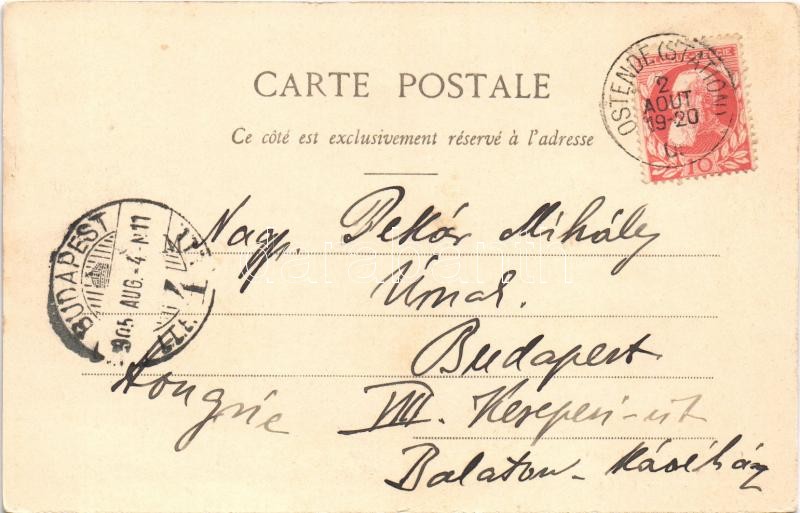 CARTE POSTALE
Ce côté est exclusivement réservé à l'adresse
OSTENDE (STATION)
2
AOUT
19-20
10
BUDAPEST
905 AUG.-4.-N11
Nagy. Pekár Mihály
Úrnak.
Budapest
Hongrie
VIII. Kerepesi-út
Balaton-Kávéház